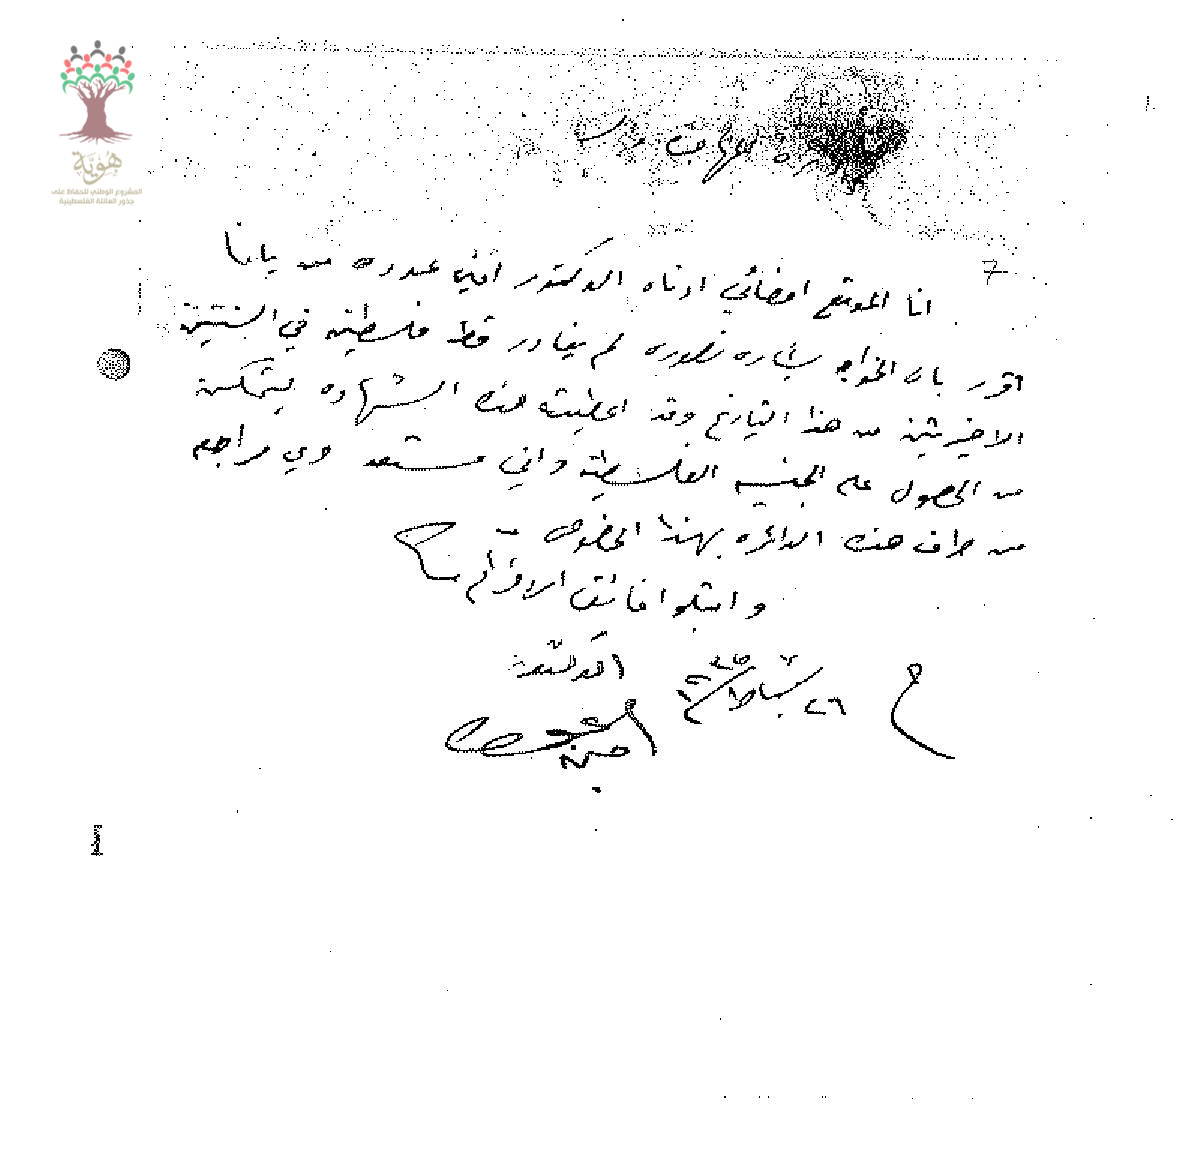 هُويَّة
المشروع الوطني للحفاظ على
جذور العائلة الفلسطينية
7
انا الموقع امضائي ادناه الدكتور امين من يافا
اقر بان الخواجه بشاره لم يغادر قط فلسطين في السنتين
الاخيرتين من هذا التاريخ وقد اعطيت هذه الشهاده ليتمكن
من الحصول على الجنسيه الفلسطينيه واني مستعد مراجعه
من طرف هذه الدائره بهذا الخصوص
واقبلوا فائق الاحترام
٢٦ شباط
الدكتور
امين